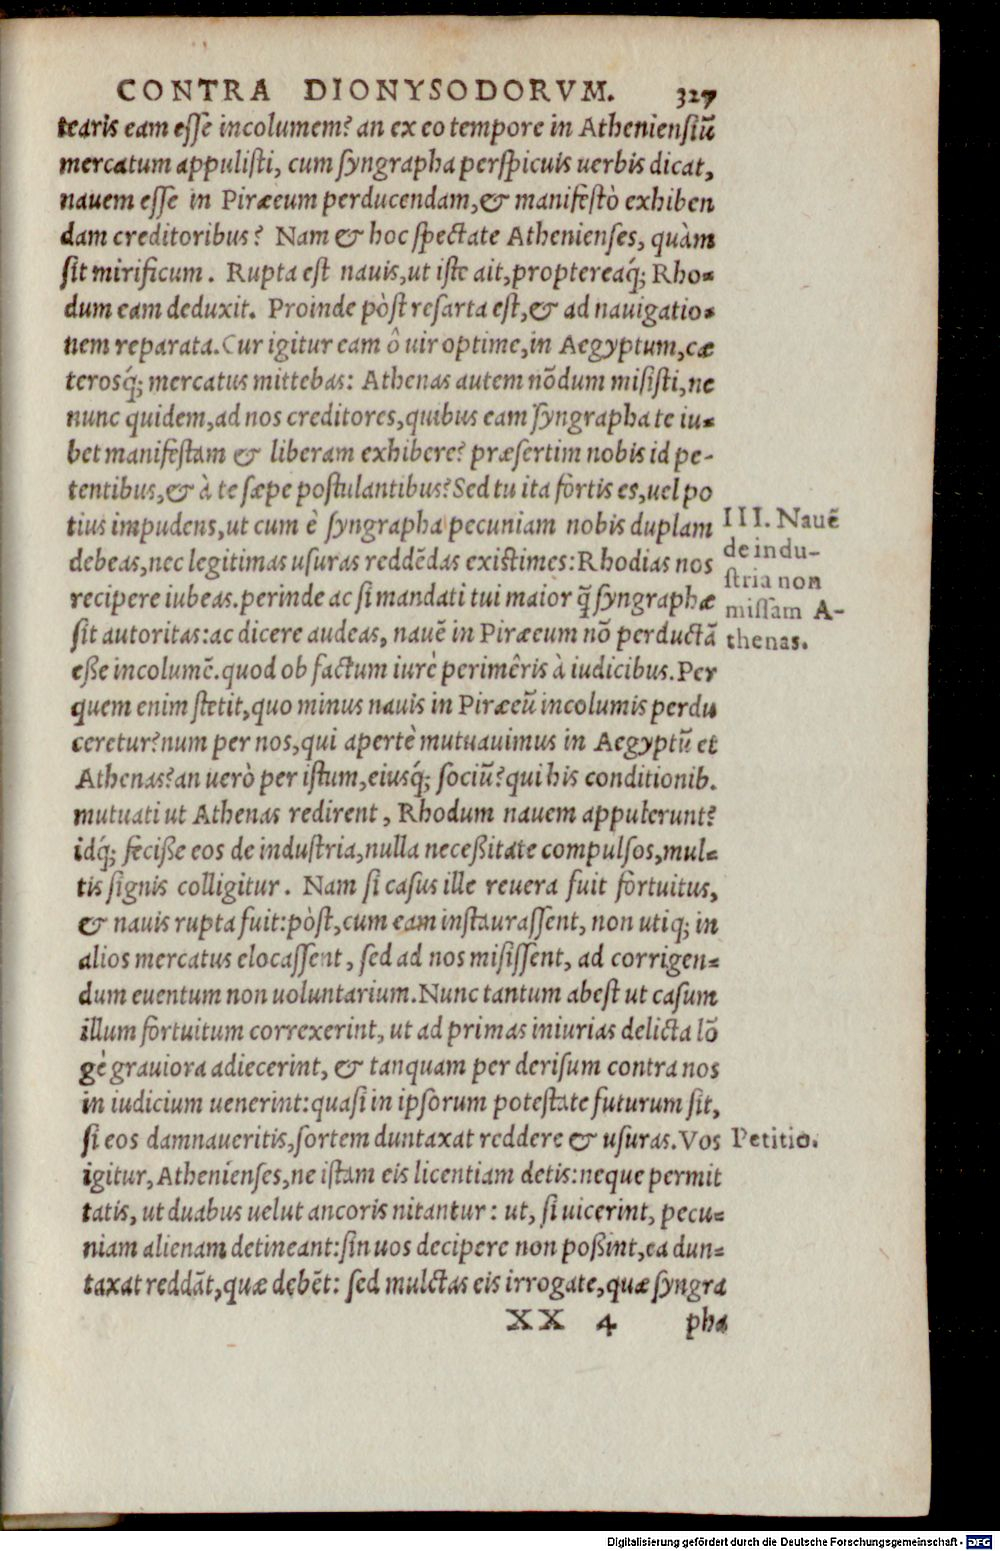 CONTRA DIONYSODORVM. 327
tearis eam esse incolumem? an ex eo tempore in Atheniensiū
mercatum appulisti, cum syngrapha perspicuis uerbis dicat,
nauem esse in Piræeum perducendam, & manifestò exhiben
dam creditoribus? Nam & hoc spectate Athenienses, quàm
sit mirificum. Rupta est nauis, ut iste ait, proptereaq́; Rho-
dum eam deduxit. Proinde pòst resarta est, & ad nauigatio-
nem reparata. Cur igitur eam ô uir optime, in Aegyptum, cæ
terosq́; mercatus mittebas: Athenas autem nōdum misisti, ne
nunc quidem, ad nos creditores, quibus eam syngrapha te iu-
bet manifestam & liberam exhibere? præsertim nobis id pe-
tentibus, & à te sæpe postulantibus? Sed tu ita fortis es, uel po
tius impudens, ut cum è syngrapha pecuniam nobis duplam
debeas, nec legitimas usuras reddēdas existimes: Rhodias nos
recipere iubeas. perinde ac si mandati tui maior q̃ syngraphæ
sit autoritas: ac dicere audeas, nauē in Piræeum nō perductā
eße incolumē. quod ob factum iurè perimêris à iudicibus. Per
quem enim stetit, quo minus nauis in Piræeū incolumis perdu
ceretur? num per nos, qui apertè mutuauimus in Aegyptū et
Athenas? an uerò per istum, eiusq́; sociū? qui his conditionib.
mutuati ut Athenas redirent, Rhodum nauem appulerunt?
idq́; feciße eos de industria, nulla neceßitate compulsos, mul-
tis signis colligitur. Nam si casus ille reuera fuit fortuitus,
& nauis rupta fuit: pòst, cum eam instaurassent, non utiq; in
alios mercatus elocassent, sed ad nos misissent, ad corrigen-
dum euentum non uoluntarium. Nunc tantum abest ut casum
illum fortuitum correxerint, ut ad primas iniurias delicta lō
gè grauiora adiecerint, & tanquam per derisum contra nos
in iudicium uenerint: quasi in ipsorum potestate futurum sit,
si eos damnaueritis, sortem duntaxat reddere & usuras. Vos
igitur, Athenienses, ne istam eis licentiam detis: neque permit
tatis, ut duabus uelut ancoris nitantur: ut, si uicerint, pecu-
niam alienam detineant: sin uos decipere non poßint, ea dun-
taxat reddāt, quæ debēt: sed mulctas eis irrogate, quæ syngra
XX 4 pha
III. Nauē
de indu-
stria non
missam A-
thenas.
Petitio.
Digitalisierung gefördert durch die Deutsche Forschungsgemeinschaft - DFG